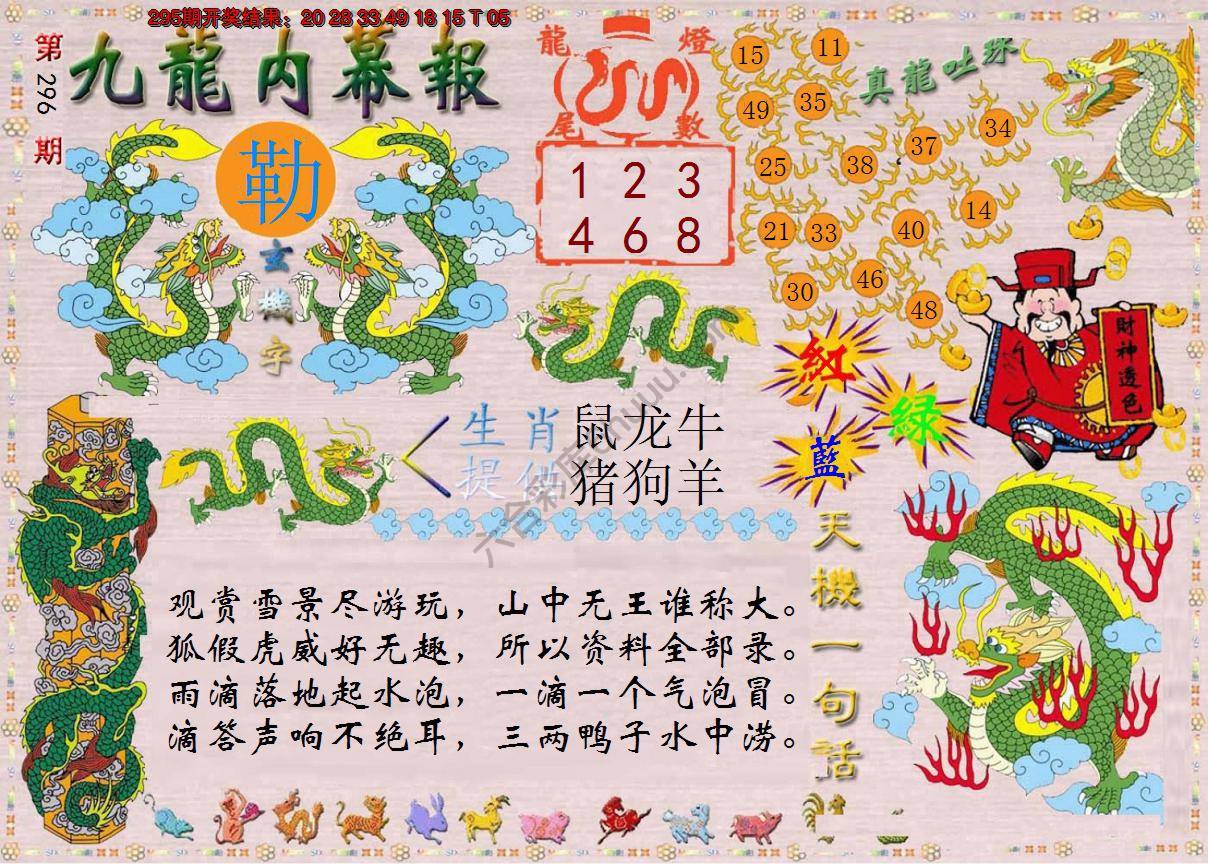 295期开奖结果：20 28 33 49 18 15 T 05
第296期
九龍内幕報
勒
玄機字
龍燈
尾數
1 2 3
4 6 8
真龍吐珠
15 11
49 35
25 38 37 34
21 33 40 14
30 46 48
財神透色
紅
綠
藍
生肖 鼠龙牛
提供 猪狗羊
天機一句話
观赏雪景尽游玩，山中无王谁称大。
狐假虎威好无趣，所以资料全部录。
雨滴落地起水泡，一滴一个气泡冒。
滴答声响不绝耳，三两鸭子水中涝。